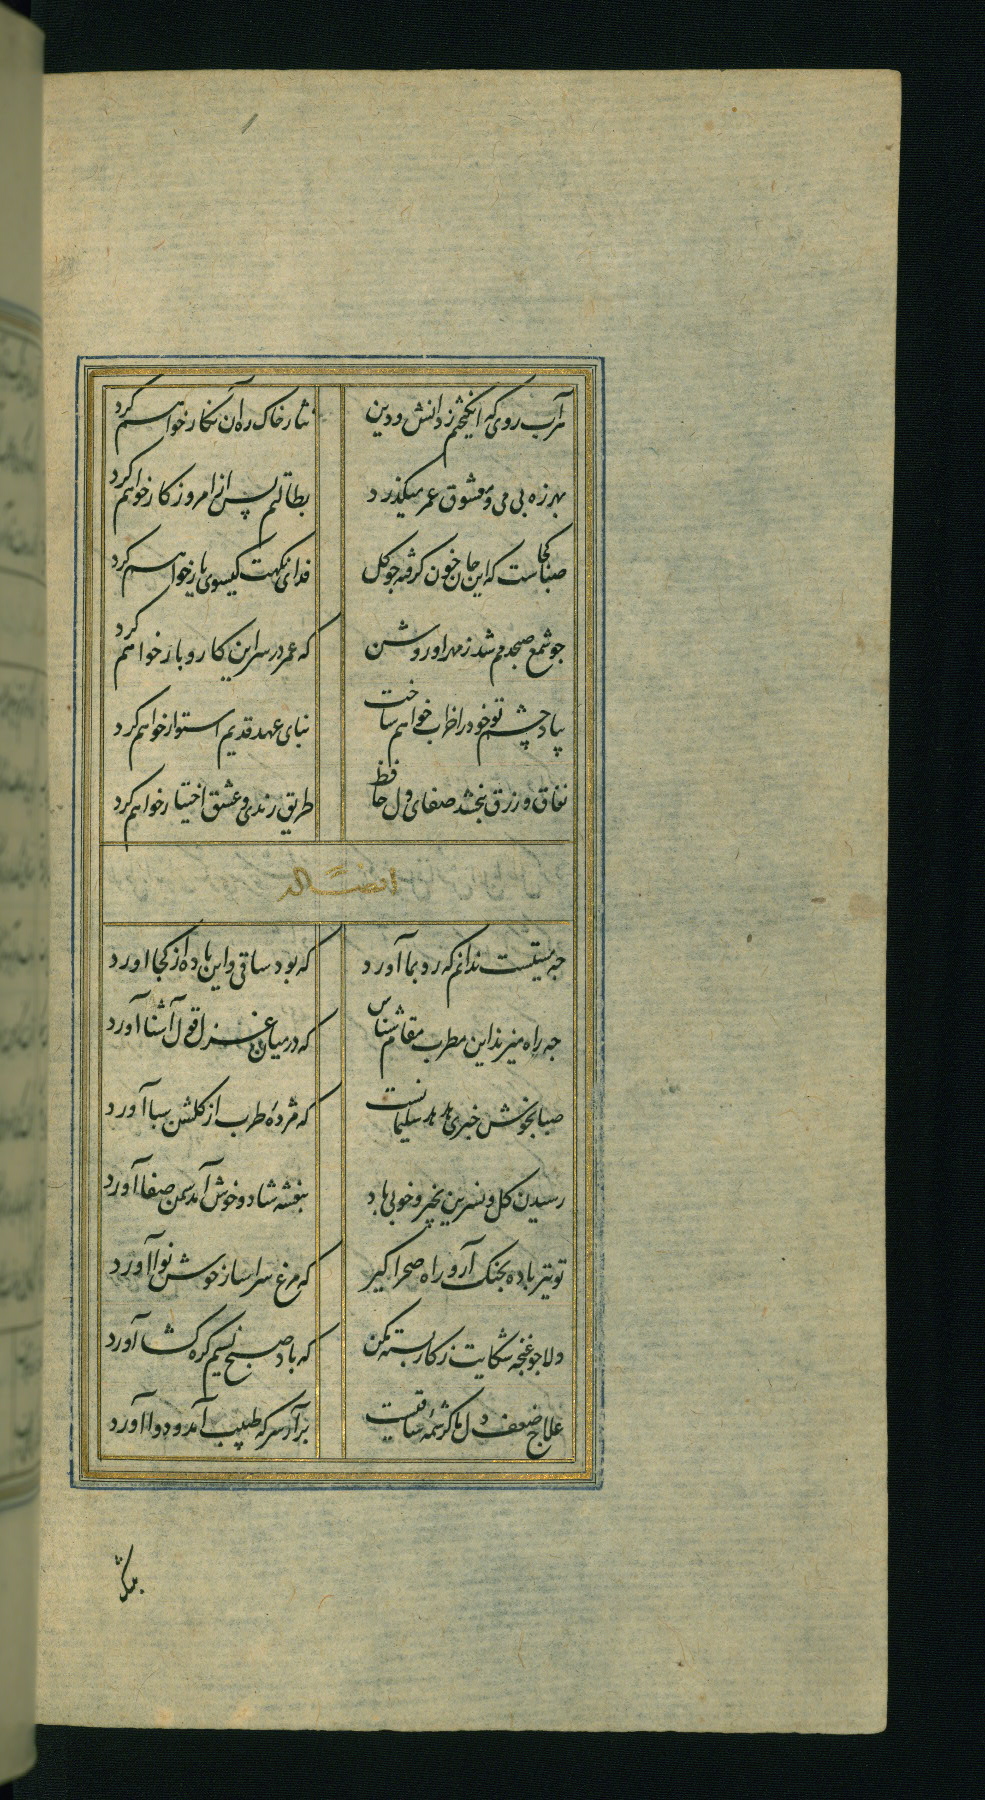 هر آب روی که اندوختم ز دانش و دین
نثار خاک ره آن نکار خواهم کرد
بهرزه بی می و معشوق عمر میکذرد
بطالتم بس از امروز کار خواهم کرد
صبا کجاست که این جان خون کرفته جو کل
فدای نکهت کیسوی یار خواهم کرد
جو شمع صبحدم شد ز مهر او روشن
که عمر در سر این کار و بار خواهم کرد
بیاد چشم تو خود را خراب خواهم ساخت
بنای عهد قدیم استوار خواهم کرد
نفاق و زرق نبخشد صفای دل حافظ
طریق رندی و عشق اختیار خواهم کرد
جه مستیست ندانم که رو بما آورد
که بود ساقی و این باده از کجا اورد
جه راه میزند این مطرب مقام شناس
که در میان غزل قول آشنا آورد
صبا بخوش خبری هدهد سلیمانست
که مژده طرب از کلشن سبا آورد
رسیدن کل و نسرین بخیر و خوبی باد
بنفشه شاد و خوش آمد سمن صفا آورد
تو نیز باده بجنک آر و راه صحرا کیر
که مرغ سرا ساز خوش نوا آورد
دلا جو غنجه شکایت ز کار بسته مکن
که باد صبح نسیم کره کشا آورد
علاج ضعف دل ما کرشمه ساقیست
برآر سر که طبیب آمد و دوا آورد